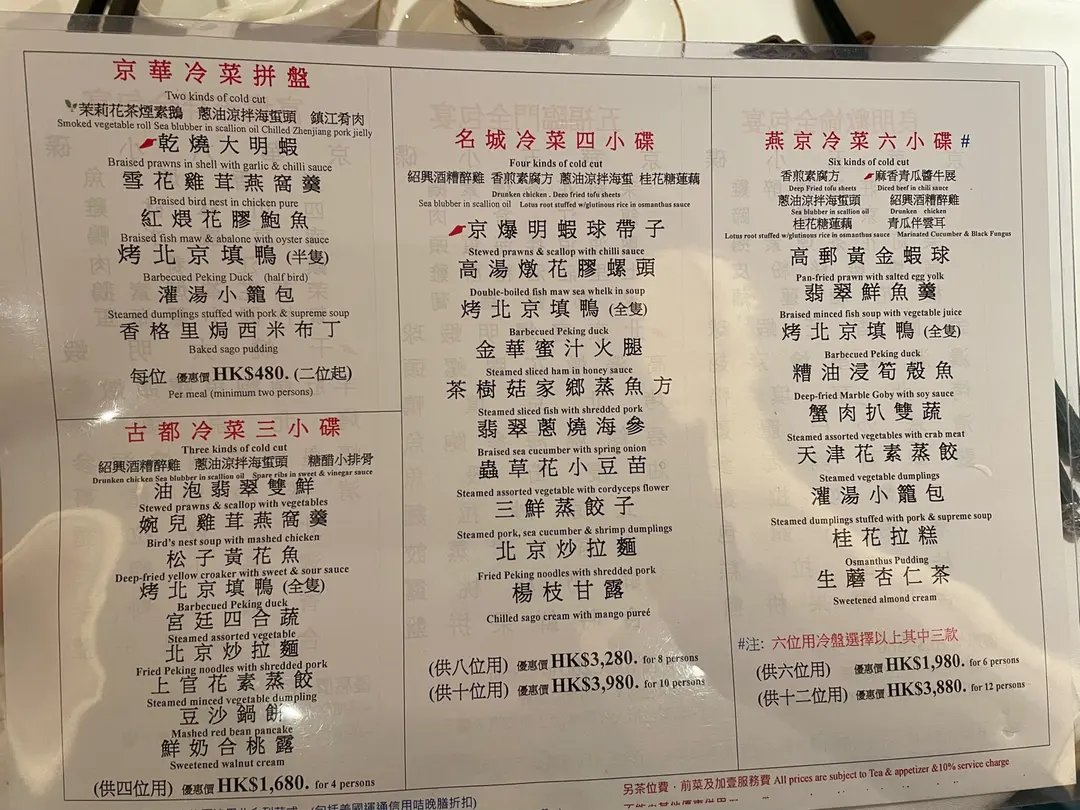 京華冷菜拼盤
Two kinds of cold cut
茉莉花茶煙素鵝 蔥油涼拌海蜇頭 鎮江肴肉
Smoked vegetable roll Sea blubber in scallion oil Chilled Zhenjiang pork jelly
乾燒大明蝦
Braised prawns in shell with garlic & chilli sauce
雪花雞茸燕窩羹
Braised bird nest in chicken pure
紅煨花膠鮑魚
Braised fish maw & abalone with oyster sauce
烤北京填鴨(半隻)
Barbecued Peking Duck (half bird)
灌湯小籠包
Steamed dumplings stuffed with pork & supreme soup
香格里焗西米布丁
Baked sago pudding
每位 優惠價HK$480.(二位起)
Per meal (minimum two persons)
古都冷菜三小碟
Three kinds of cold cut
紹興酒糟醉雞 蔥油涼拌海蜇頭 糖醋小排骨
Drunken chicken Sea blubber in scallion oil Spare ribs in sweet & vinegar sauce
油泡翡翠雙鮮
Stewed prawns & scallop with vegetables
婉兒雞茸燕窩羹
Bird's nest soup with mashed chicken
松子黃花魚
Deep-fried yellow croaker with sweet & sour sauce
烤北京填鴨(全隻)
Barbecued Peking duck
宮廷四合蔬
Steamed assorted vegetable
北京炒拉麵
Fried Peking noodles with shredded pork
上官花素蒸餃
Steamed minced vegetable dumpling
豆沙鍋餅
Mashed red bean pancake
鮮奶合桃露
Sweetened walnut cream
(供四位用) 優惠價HK$1,680. for 4 persons
名城冷菜四小碟
Four kinds of cold cut
紹興酒糟醉雞 香煎素腐方 蔥油涼拌海蜇 桂花糖蓮藕
Drunken chicken . Deco fried tofu sheets
Sea blubber in scallion oil Lotus root stuffed w/glutinous rice in osmanthus sauce
京爆明蝦球帶子
Stewed prawns & scallop with chilli sauce
高湯燉花膠螺頭
Double-boiled fish maw sea whelk in soup
烤北京填鴨(全隻)
Barbecued Peking duck
金華蜜汁火腿
Steamed sliced ham in honey sauce
茶樹菇家鄉蒸魚方
Steamed sliced fish with shredded pork
翡翠蔥燒海參
Braised sea cucumber with spring onion
蟲草花小豆苗
Steamed assorted vegetable with cordyceps flower
三鮮蒸餃子
Steamed pork, sea cucumber & shrimp dumplings
北京炒拉麵
Fried Peking noodles with shredded pork
楊枝甘露
Chilled sago cream with mango pureé
(供八位用) 優惠價HK$3,280. for 8 persons
(供十位用) 優惠價HK$3,980. for 10 persons
燕京冷菜六小碟#
Six kinds of cold cut
香煎素腐方 麻香青瓜醬牛展
Deep Fried tofu sheets Diced beef in chili sauce
蔥油涼拌海蜇頭 紹興酒糟醉雞
Sea blubber in scallion oil Drunken chicken
桂花糖蓮藕 青瓜伴雲耳
Lotus root stuffed w/glutinous rice in osmanthus sauce Marinated Cucumber & Black Fungus
高郵黃金蝦球
Pan-fried prawn with salted egg yolk
翡翠鮮魚羹
Braised minced fish soup with vegetable juice
烤北京填鴨(全隻)
Barbecued Peking duck
糟油浸筍殼魚
Deep-fried Marble Goby with soy sauce
蟹肉扒雙蔬
Steamed assorted vegetables with crab meat
天津花素蒸餃
Steamed vegetable dumplings
灌湯小籠包
Steamed dumplings stuffed with pork & supreme soup
桂花拉糕
Osmanthus Pudding
生蘑杏仁茶
Sweetened almond cream
#注: 六位用冷盤選擇以上其中三款
(供六位用) 優惠價HK$1,980. for 6 persons
(供十二位用) 優惠價HK$3,880. for 12 persons
另茶位費，前菜及加壹服務費 All prices are subject to Tea & appetizer &10% service charge
(包括美國運通信用咭晚膳折扣)